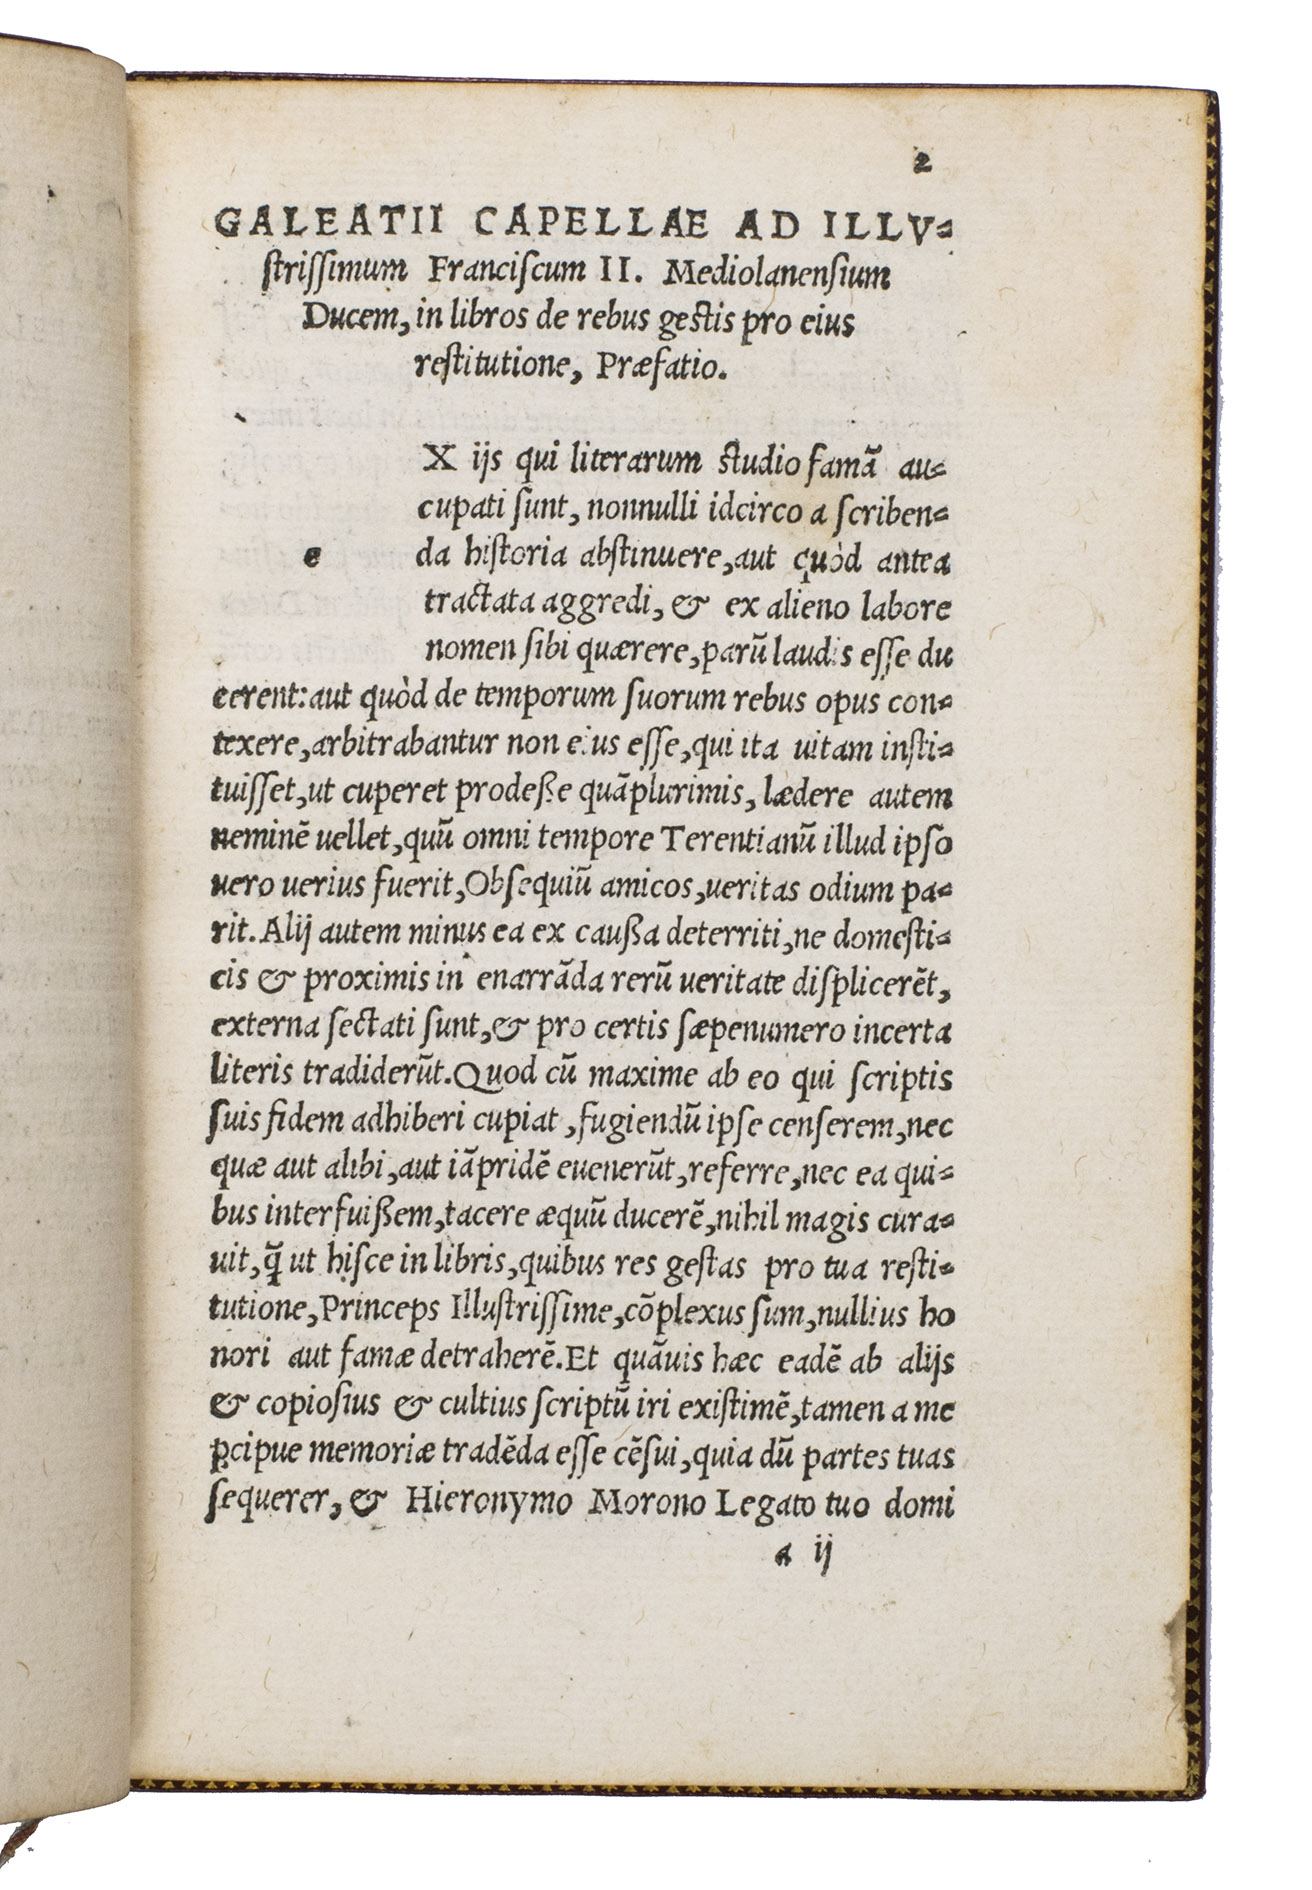 2
GALEATII CAPELLAE AD ILLV-
ſtriſſimum Franciſcum II. Mediolanenſium
Ducem, in libros de rebus geſtis pro eius
reſtitutione, Præfatio.
X ijs qui literarum ſtudio famā au-
cupati ſunt, nonnulli idcirco a ſcriben-
e da hiſtoria abſtinuere, aut quòd antea
tractata aggredi, & ex alieno labore
nomen ſibi quærere, parū laudis eſſe du
cerent: aut quòd de temporum ſuorum rebus opus con-
texere, arbitrabantur non eius eſſe, qui ita uitam inſti-
tuiſſet, ut cuperet prodeße quāplurimis, lædere autem
neminē uellet, quū omni tempore Terentianū illud ipſo
uero uerius fuerit, Obſequiū amicos, ueritas odium pa-
rit. Alij autem minus ea ex caußa deterriti, ne domeſti-
cis & proximis in enarrāda rerū ueritate diſplicerēt,
externa ſectati ſunt, & pro certis ſæpenumero incerta
literis tradiderūt. Quod cū maxime ab eo qui ſcriptis
ſuis fidem adhiberi cupiat, fugiendū ipſe cenſerem, nec
quæ aut alibi, aut iāpridē euenerūt, referre, nec ea qui-
bus interfuißem, tacere æquū ducerē, nihil magis cura-
uit, q̄ ut hiſce in libris, quibus res geſtas pro tua reſti-
tutione, Princeps Illuſtriſſime, cōplexus ſum, nullius ho
nori aut famæ detraherē. Et quāuis hæc eadē ab alijs
& copioſius & cultius ſcriptū iri exiſtimē, tamen a me
p̱cipue memoriæ tradēda eſſe cēſui, quia dū partes tuas
ſequerer, & Hieronymo Morono Legato tuo domi
a ij